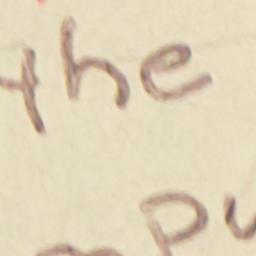 the
pu